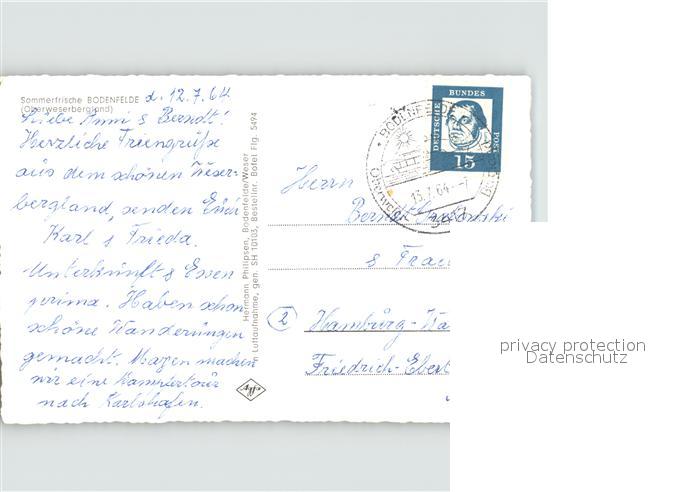 Sommerfrische BODENFELDE d. 12.7.64
(Oberweserbergland)
Liebe Anni & Berndt!
Herzliche Feriengrüße
aus dem schönen Weser-
bergland, senden Euch
Karl & Frieda.
Unterkunft & Essen
prima. Haben schon
schöne Wanderungen
gemacht. Morgen machen
wir eine Dampfertour
nach Karlshafen.
Hermann Philipsen, Bodenfelde/Weser
Luftaufnahme, gen. SH 10103, Bestellnr. Botel Flg. 5494
Agfa
BUNDES
DEUTSCHE
POST
15
BODENFELDE
13.7.64.-7
Herrn
Berndt
& Frau
2
Hamburg-
Friedrich-Ebert
privacy protection
Datenschutz